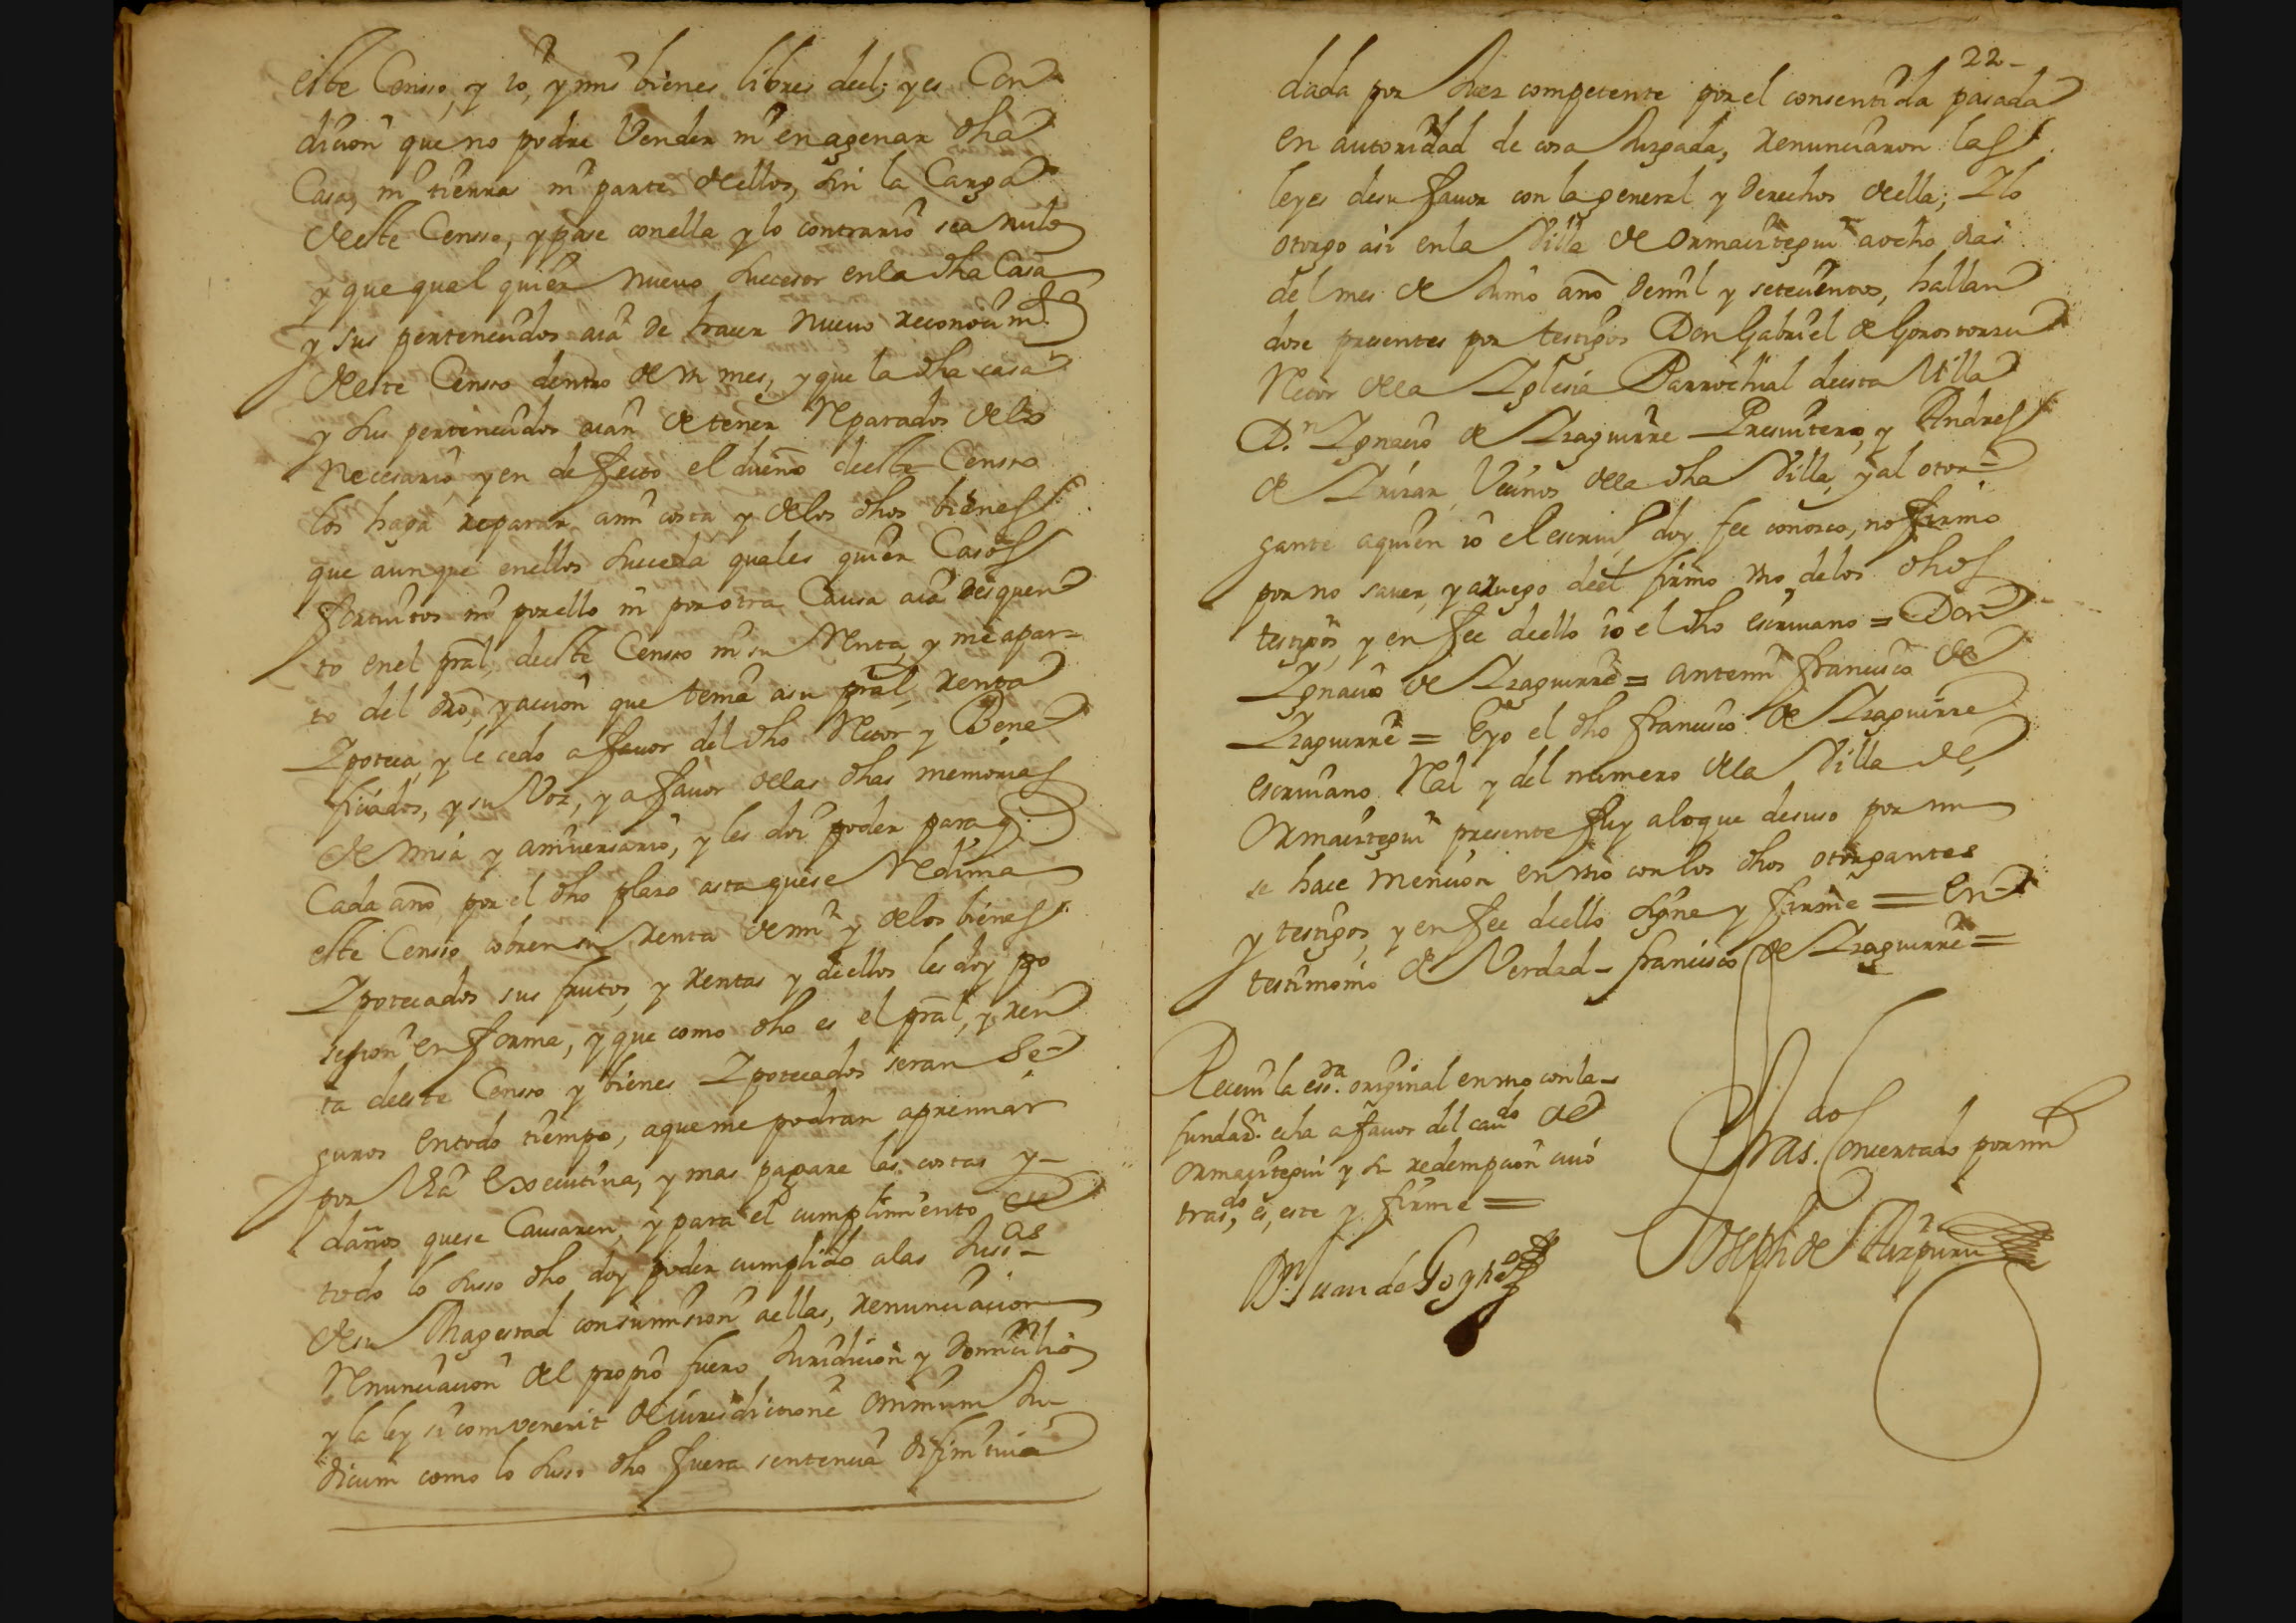 este Censso, y io, y mis bienes libres deel; y es Con
dicion que no podre Vender ni en agenar dha
Casa, ni tierra ni parte deellos, sin la Carga
deeste Censso, y pase conella y lo contrario sea nulo
y que qual quier nuevo subcesor enla dha Casa
y sus pertenecidos aia de hacer nuevo reconocim.to
deeste Censso dentro de un mes, y que la dha casa
y sus pertenecidos aian de tener Reparados delo
necesario y en defecto el dueño deeste Censso
los haga reparar ami costa y delos dhos bienes
que aunque enellos succeda quales quier Casos
fortuitos ni por ello ni por otra Causa aia desquen
to enel pral, deeste Censso ni su Renta, y me apar=
to del dro, y accion que tenia asu pral, renta
Ipoteca, y le cedo a favor del dho Rector y Bene
ficiados, y su Voz, y a favor delas dhas memorias
de misa y aniversario, y les doi poder para q.
Cada año por el dho plazo asta quese Redima
este Censso cobren su renta demi y delos bienes
Ipotecados sus frutos, y rentas y deellos les doy po
session en forma, y que como dho es el pral, y ren
ta deeste Censso y bienes Ipotecados seran Se-
guros entodo tiempo, aque me podran apremiar
por Via Executiva, y mas pagare las costas y-
daños quese Causaren, y para el cumplimiento de
todo lo susso dho doy poder cumplido alas Juss.as
desu Magestad consumision aellas, renunciacion
Renunciacion del propio fuero Juridicion y Domicilio
y la ley si convenerit de iurisdictione omnium Ju
dicum como lo susso dho fuera sentencia difinitiva
22-
dada por Juez competente por el consentida pasada
en autoridad de cosa Juzgada, renunciaron las
leyes desu favor con la general y derechos deella; Ilo
otorgo asi enla Villa de Ormaiztegui aocho dias
del mes de Junio año demil y setecientos, hallan
dose presentes por testigos Don Gabriel de Gorostorzu
Rector dela Iglesia Parrochial deesta Villa
D.n Ignacio de Izaguirre Presuitero, y Andres
de Irizar Vecinos dela dha Villa, y al otor=
gante aquien io el escriu.o doy fee conozco, no firmo
por no saver, y aruego deel firmo uno delos dhos
testigos, y en fee deello io el dho escriuano = Don
Ignacio de Izaguirre = antemi francisco de
Izaguirre = E yo el dho francisco de Izaguirre
escriuano Real y del numero dela Villa de
Ormaiztegui presente fuy aloque desuso por mi
se hace mencion en uno con los dhos otorgantes
y testigos, y en fee deello signe y firme = En
testimonio de Verdad - francisco de Izaguirre =
Receui la ess.ra original en uno con la-
fundaz.n echa a favor del cau.do de
Ormaiztegui y su redempcion cuio
tras.do, es, este y firme =
Tras.do Concertado por mi
D.n Juan de
Joseph de Aizpuru